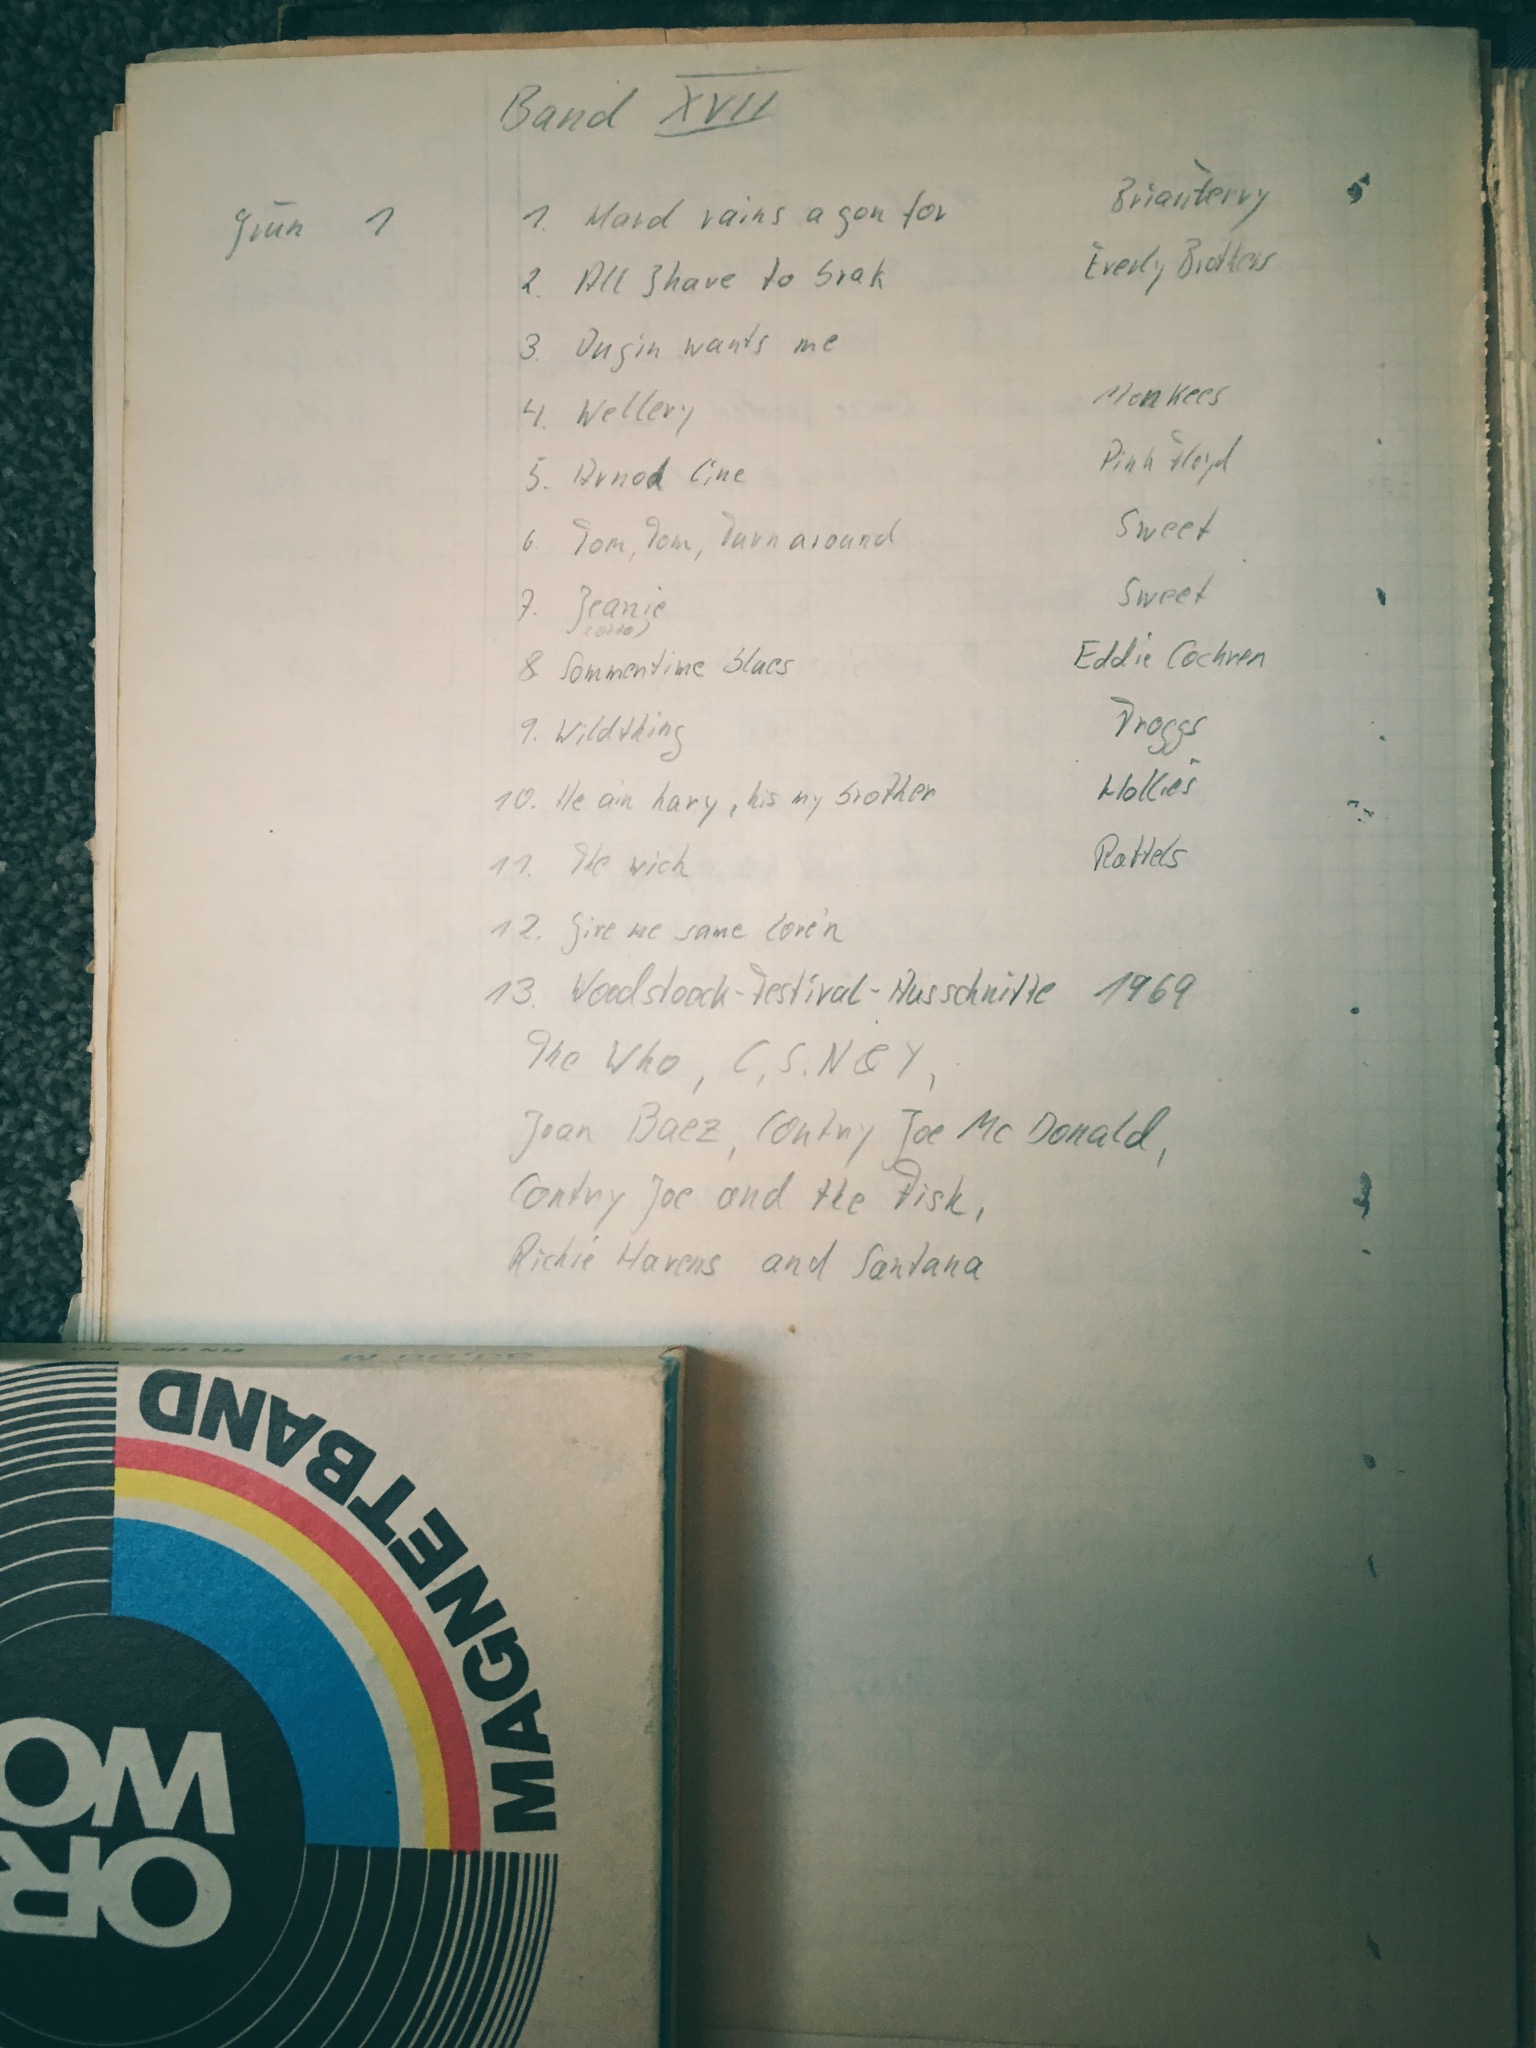 Band XVII
Grün 1
1. Hard rains a gon for Brian Ferry
2. All I have to brak Everly Brothers
3. wants me
4. Wellery Monkees
5. Arnod line Pink Floyd
6 Tom, Tom, Turn around Sweet
7. Jeanie Sweet
8 Sommertime blues Eddie Cochren
9. Wildthing Troggs
10. He ain havy, his my brother Hollies
11. The wich Rattels
12. Give me same lové'n
13. Woodstoock-Festival-Ausschnitte 1969
The Who, C,S.N&Y,
Joan Baez, Contry Joe Mc Donald,
Contry Joe and the Fish,
Richie Havens and Santana
MAGNETBAND
ORWO